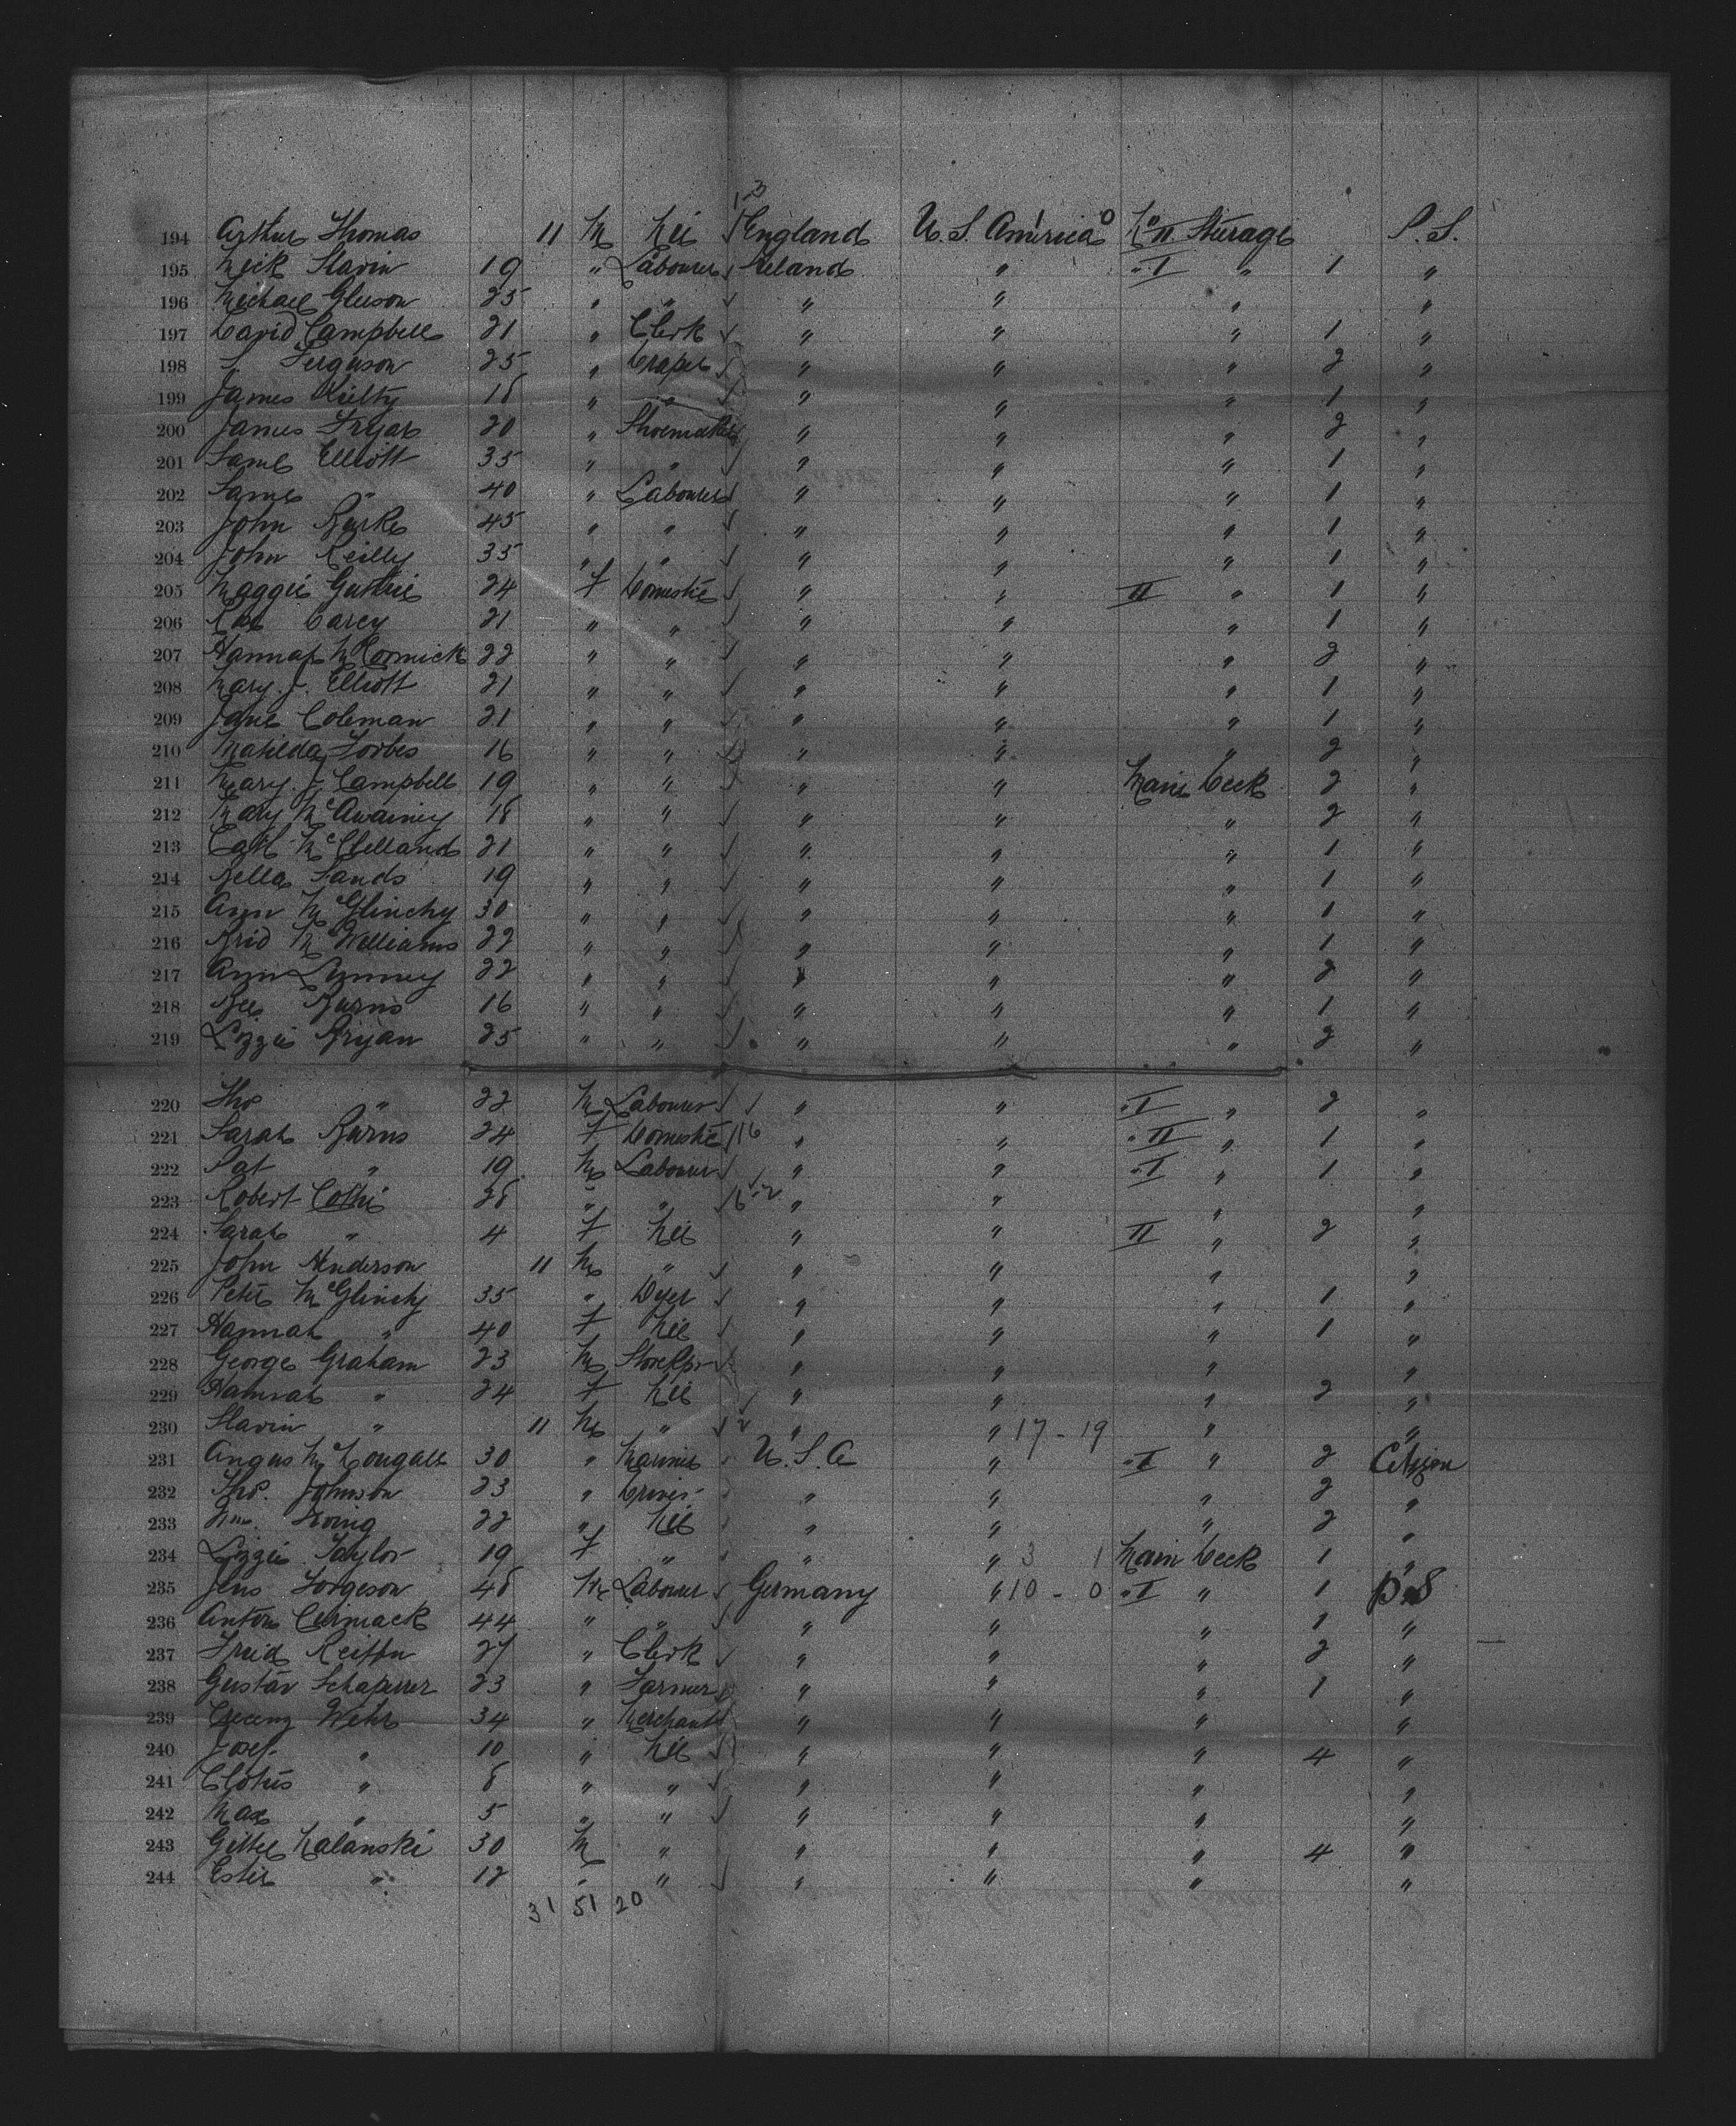 13
194 Arthur Thomas 11 M Nil √ England U. S. America 1 0 No II Sturage P. S.
195 Mick Slavin 19 " Labourer √ Ireland " " I " 1 "
196 Michael Gleeson 25 " " √ " " " "
197 David Campbell 21 " Clerk √ " " " 1 "
198 S. Ferguson 25 " Draper √ " " " 2 "
199 James Kielty 18 " " √ " " " 1 "
200 James Fryar 20 " Shoemaker " " " 2 "
201 Saml Elliott 35 " " √ " " " 1 "
202 James " 40 " Labourer √ " " " 1 "
203 John Burke 45 " " √ " " " 1 "
204 John Reilly 35 " " √ " " " 1 "
205 Maggie Guthrie 24 F Domestic √ " " II " 1 "
206 Kate Carey 21 " " √ " " " 1 "
207 Hannah McCormick 22 " " √ " " " 2 "
208 Mary J. Elliott 21 " " √ " " " 1 "
209 Jane Coleman 21 " " √ " " " 1 "
210 Matilda Forbes 16 " " √ " " " 2 "
211 Mary J Campbell 19 " " √ " " Main Deck 2 "
212 Mary McAwainey 18 " " √ " " " 2 "
213 Cath McClelland 21 " " √ " " " 1 "
214 Bella Sands 19 " " √ " " " 1 "
215 Ann McGlinchy 30 " " √ " " " 1 "
216 Brid McWilliams 22 " " √ " " " 1 "
217 Ann 22 " " √ " " " 2 "
218 Burns 16 " " √ " " " 1 "
219 Lizzie Bryan 25 " " √ " " " 2 "
220 Thos " 22 M Labourer √ √ " " " I " 2 "
221 Sarah Burns 24 F Domestic √ 16 " " " II " 1 "
222 Pat " 19 M Labourer √ √ " " " I " 1 "
223 Robert Collie 28 " " √ 6-2 " " " "
224 Sarah " 4 F Nil " " II " 2 "
225 John Anderson 11 M " √ " " " "
226 Peter McGlinchy 35 " Dyer √ " " " 1 "
227 Hannah " 40 F Nil √ " " " 1 "
228 George Graham 23 M Storekpr √ " " " "
229 Hannah " 24 F Nil √ " " " 2 "
230 Slavin " 11 M " √ 2 " " 17 - 19 " "
231 Angus McDougall 30 " Mariner U. S. A " " I " 2 Citizen
232 Thos. Johnson 23 " Driver " " " 2 "
233 Wm. Irving 22 " Nil " " " 2 "
234 Lizzie Taylor 19 F " " " 3 1 Main Deck 1 "
235 Jens Torgeson 48 M Labourer √ Germany " 10 - 0 " I " 1 P. S
236 Anton Cermack 44 " " √ " " " 1 "
237 Fried Reiffen 27 " Clerk √ " " " 2 "
238 Gustav Schaperer 23 " Farmer √ " " " 1 "
239 Wehr 34 " Merchant √ " " " "
240 Josef " 10 " Nil √ " " " 4 "
241 Clotus " 8 " " √ " " " "
242 Max " 5 " " √ " " " "
243 Gittel Malanski 30 M " " " " 4 "
244 Ester " 12 " " √ " " " "
31 51 20